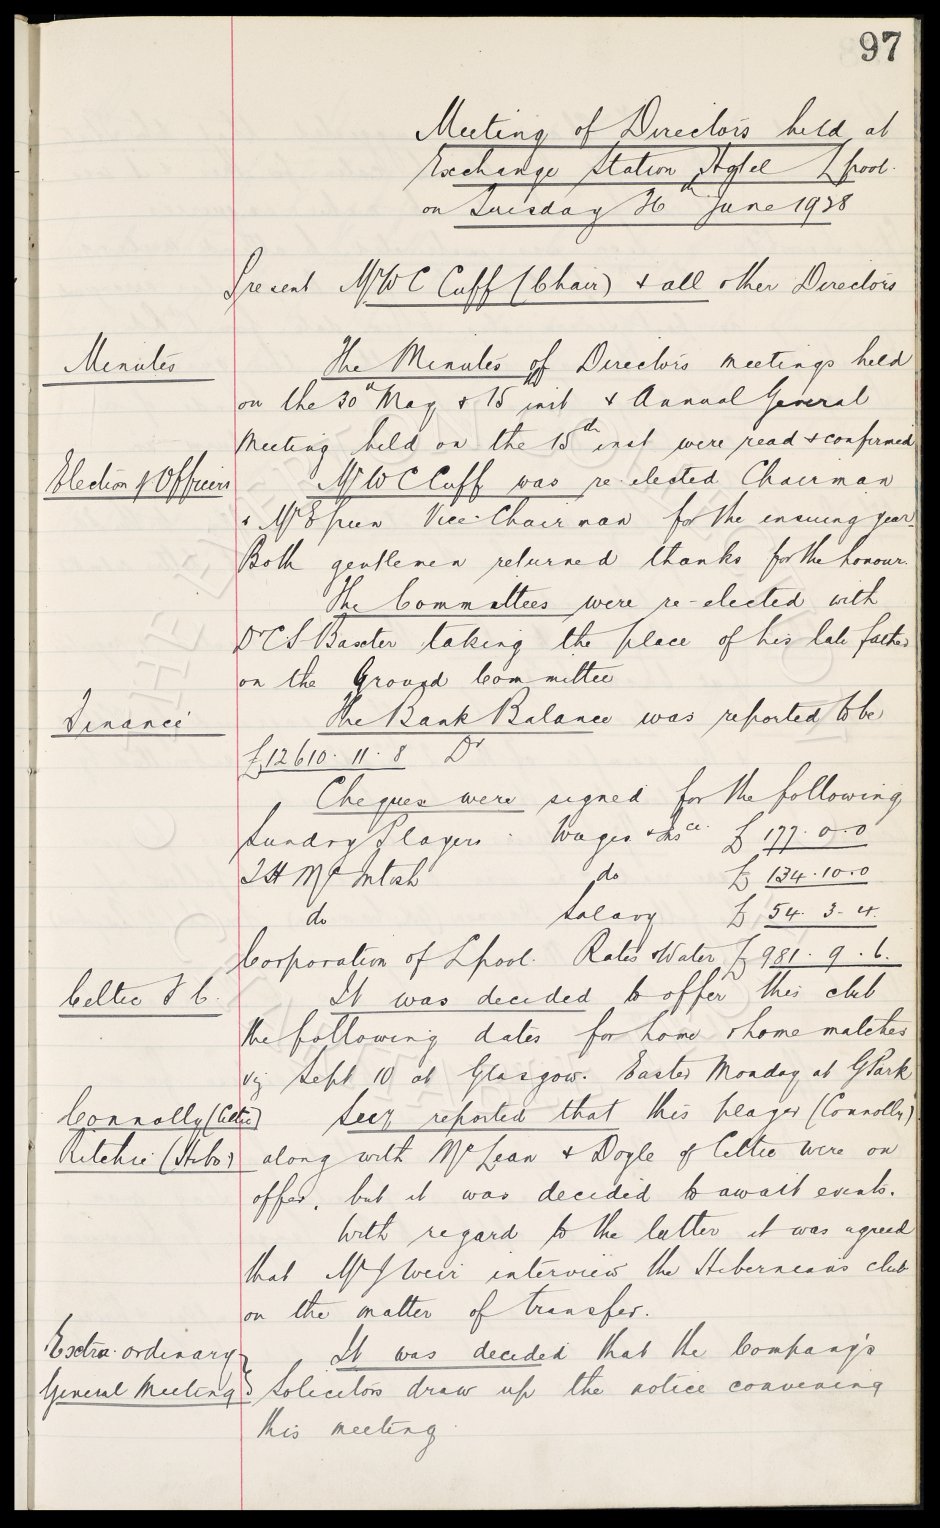 97
Meeting of Directors held at
Exchange Station Hotel L'pool.
on Tuesday 26th June 1928
Present Mr W C Cuff (Chair) & all other Directors
Minutes
The Minutes of Directors meetings held
on the 30th May & 15th inst & Annual General
Meeting held on the 15th inst were read & confirmed
Election of Officers
Mr W C Cuff was re-elected Chairman
& Mr E Green Vice-Chairman for the ensuing year.
Both gentlemen returned thanks for the honour.
The Committees were re-elected with
Dr C S Baxter taking the place of his late father
on the Ground Committee
Finance
The Bank Balance was reported to be
£12610. 11. 8 Dr
Cheques were signed for the following
Sundry Players Wages & Insce. £ 177. 0. 0
T H McIntosh do £ 134. 10. 0
do Salary £ 54. 3. 4.
Corporation of L'pool. Rates & Water £ 981. 9. 6.
Celtic F C.
It was decided to offer this club
the following dates for home & home matches
viz Sept 10 at Glasgow. Easter Monday at G Park
Connolly (Celtic)
Secy reported that this player (Connolly)
Ritchie (Hibs)
along with McLean & Doyle of Celtic were on
offer, but it was decided to await events.
With regard to the latter it was agreed
that Mr J Weir interview the Hibernians club
on the matter of transfer.
Extra-ordinary
General Meeting
It was decided that the Company's
Solicitors draw up the notice convening
this meeting.